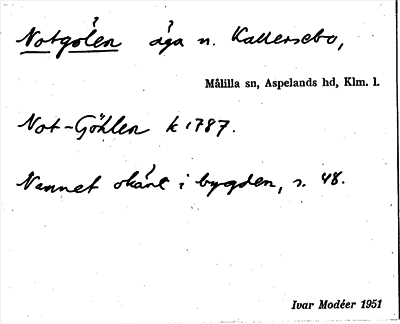 Notgölen äga n. Kallersebo,
Målilla sn, Aspelands hd, Klm. l.
Not-Göhlen k 1787.
Namnet okänt i bygden, s. 48.
Ivar Modéer 1951